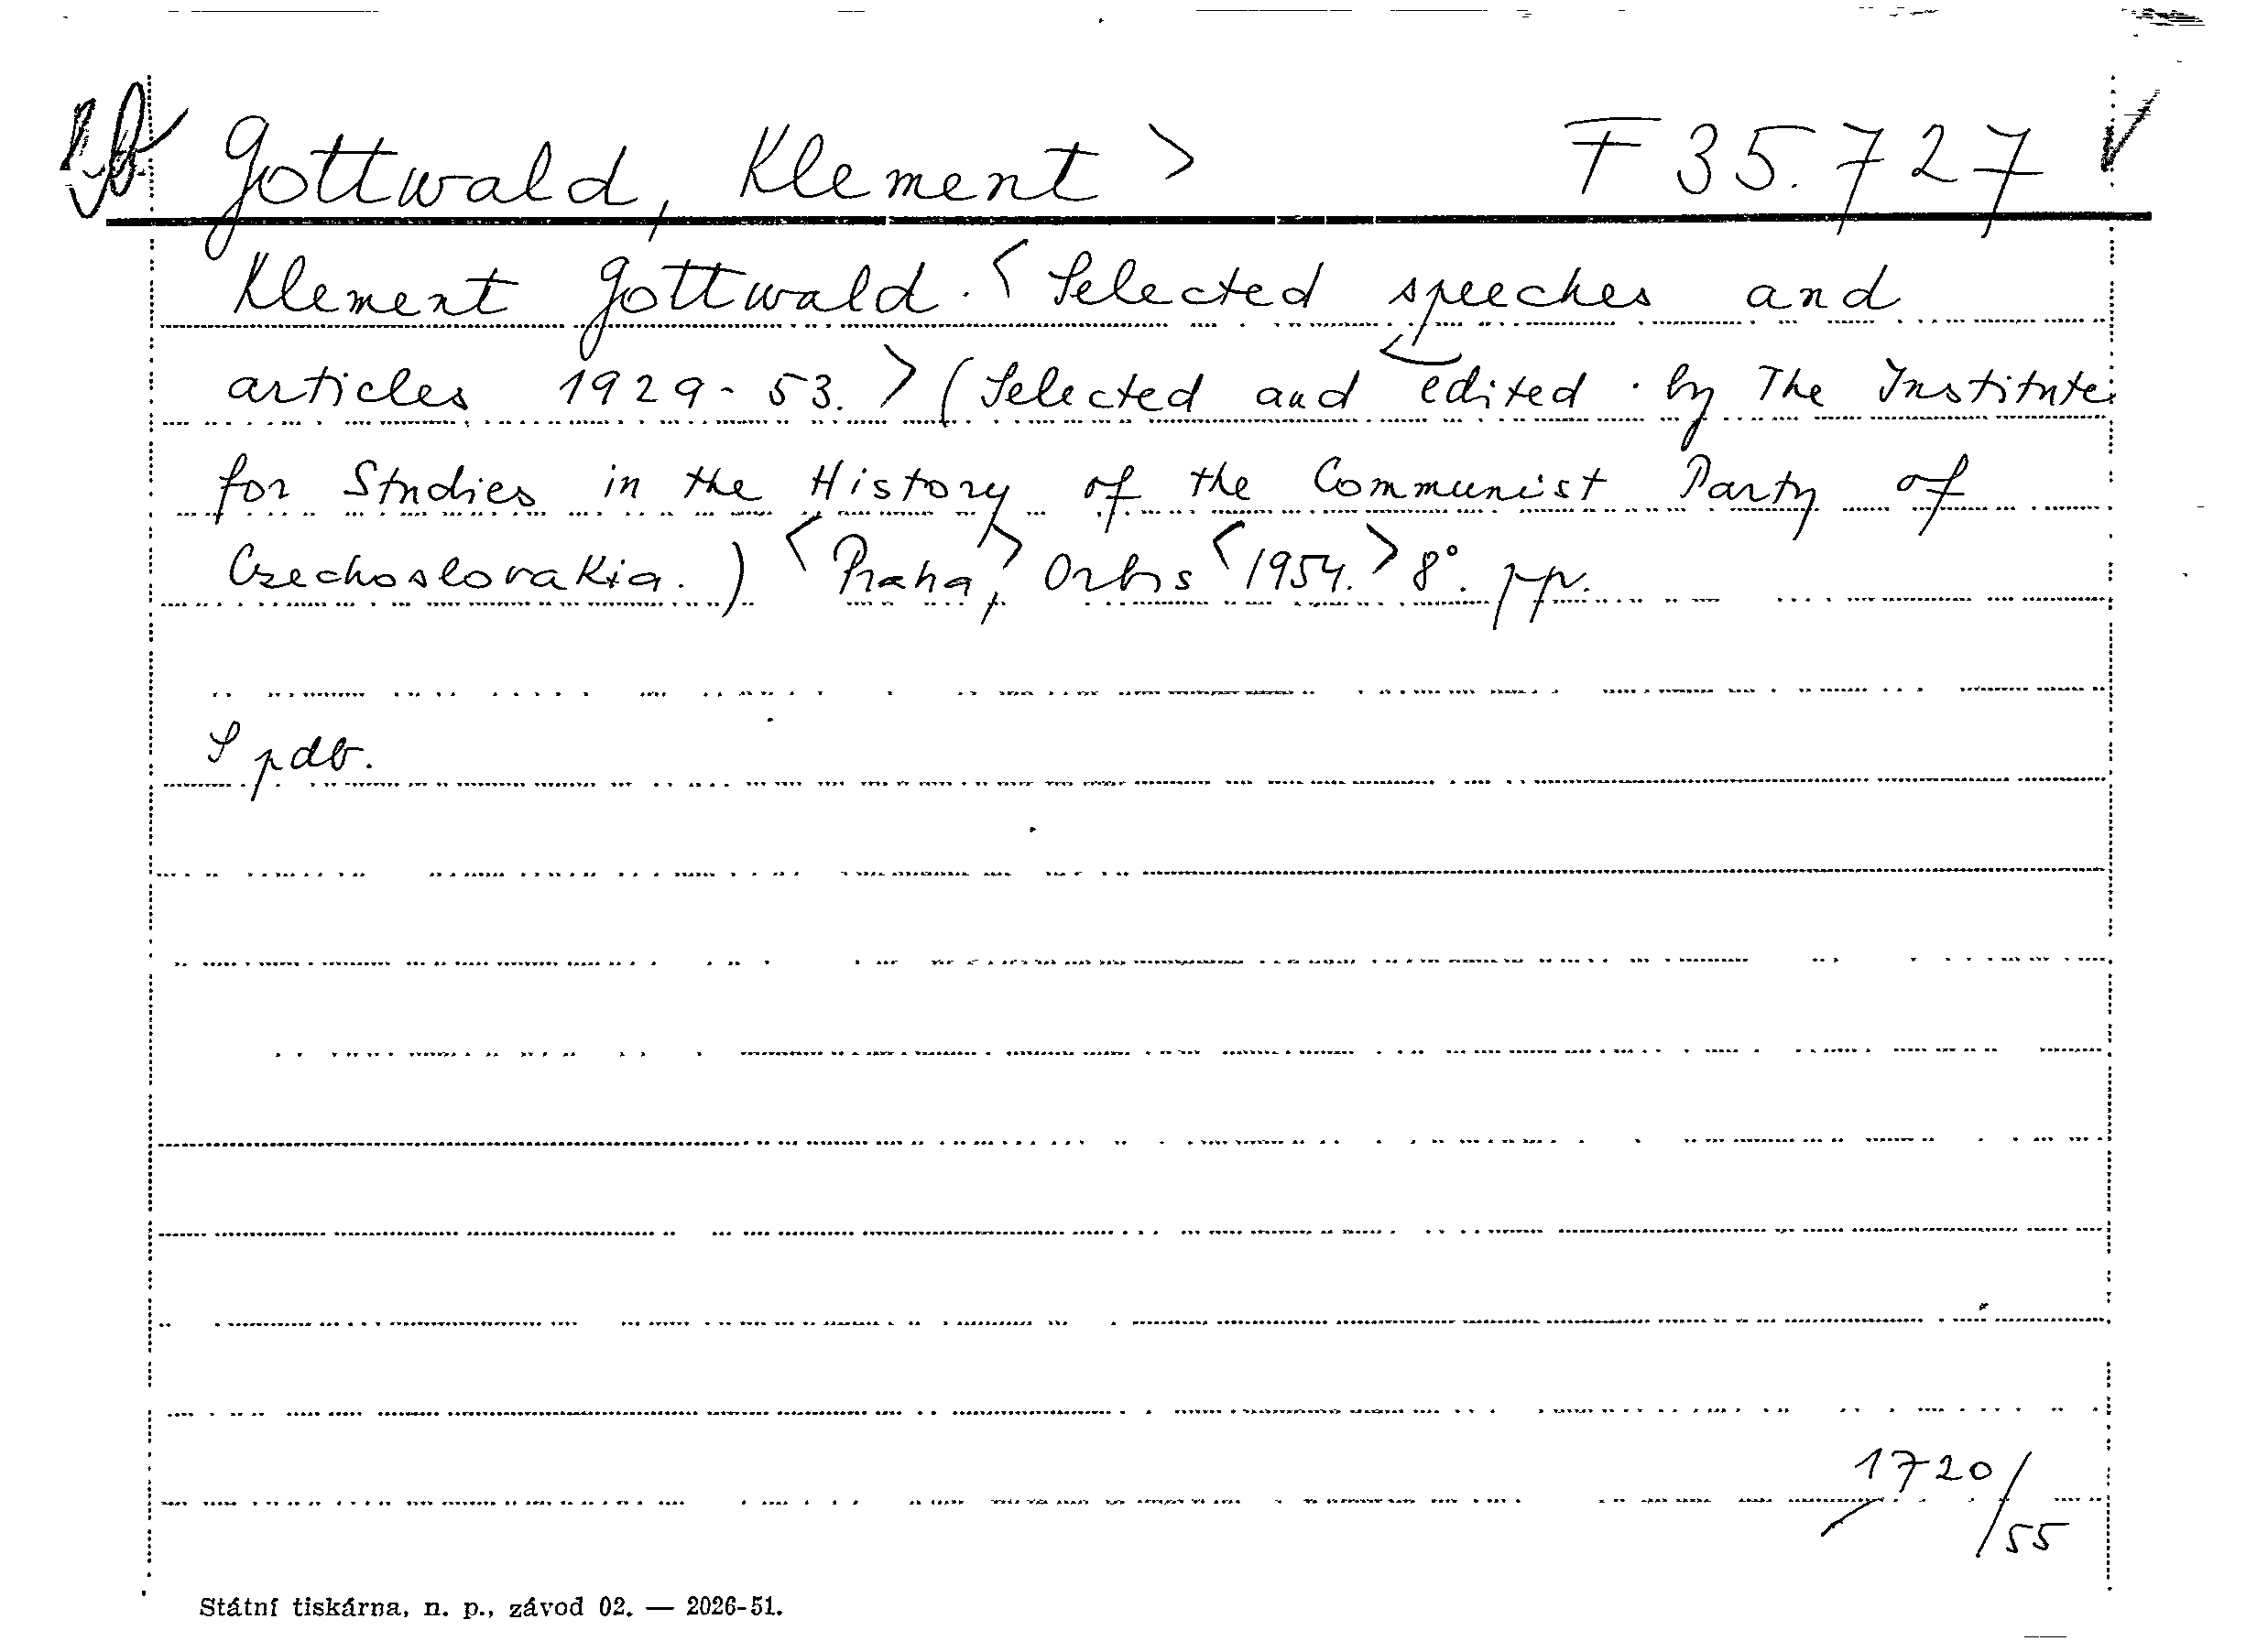 Gottwald, Klement > F 35.727
Klement Gottwald. < Selected speeches and
articles 1929-53. > (Selected and edited by The Institute
for Studies in the History of the Communist Party of
Czechoslovakia.) < Praha, > Orbis < 1954. > 8°. pp.
S pdb.
1720/55
Státní tiskárna, n. p., závod 02. — 2026-51.